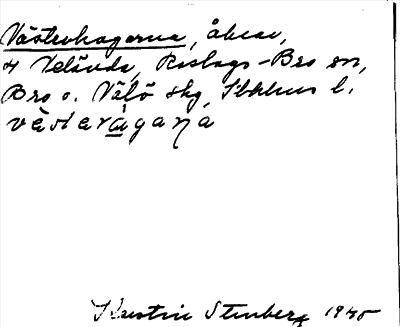 Västerhagarna, åkrar,
H Velända, Roslags-Bro sn,
Bro o. Vätö skg, Sthlms l.
vèsterágaṇa
Kerstin Stenberg 1945